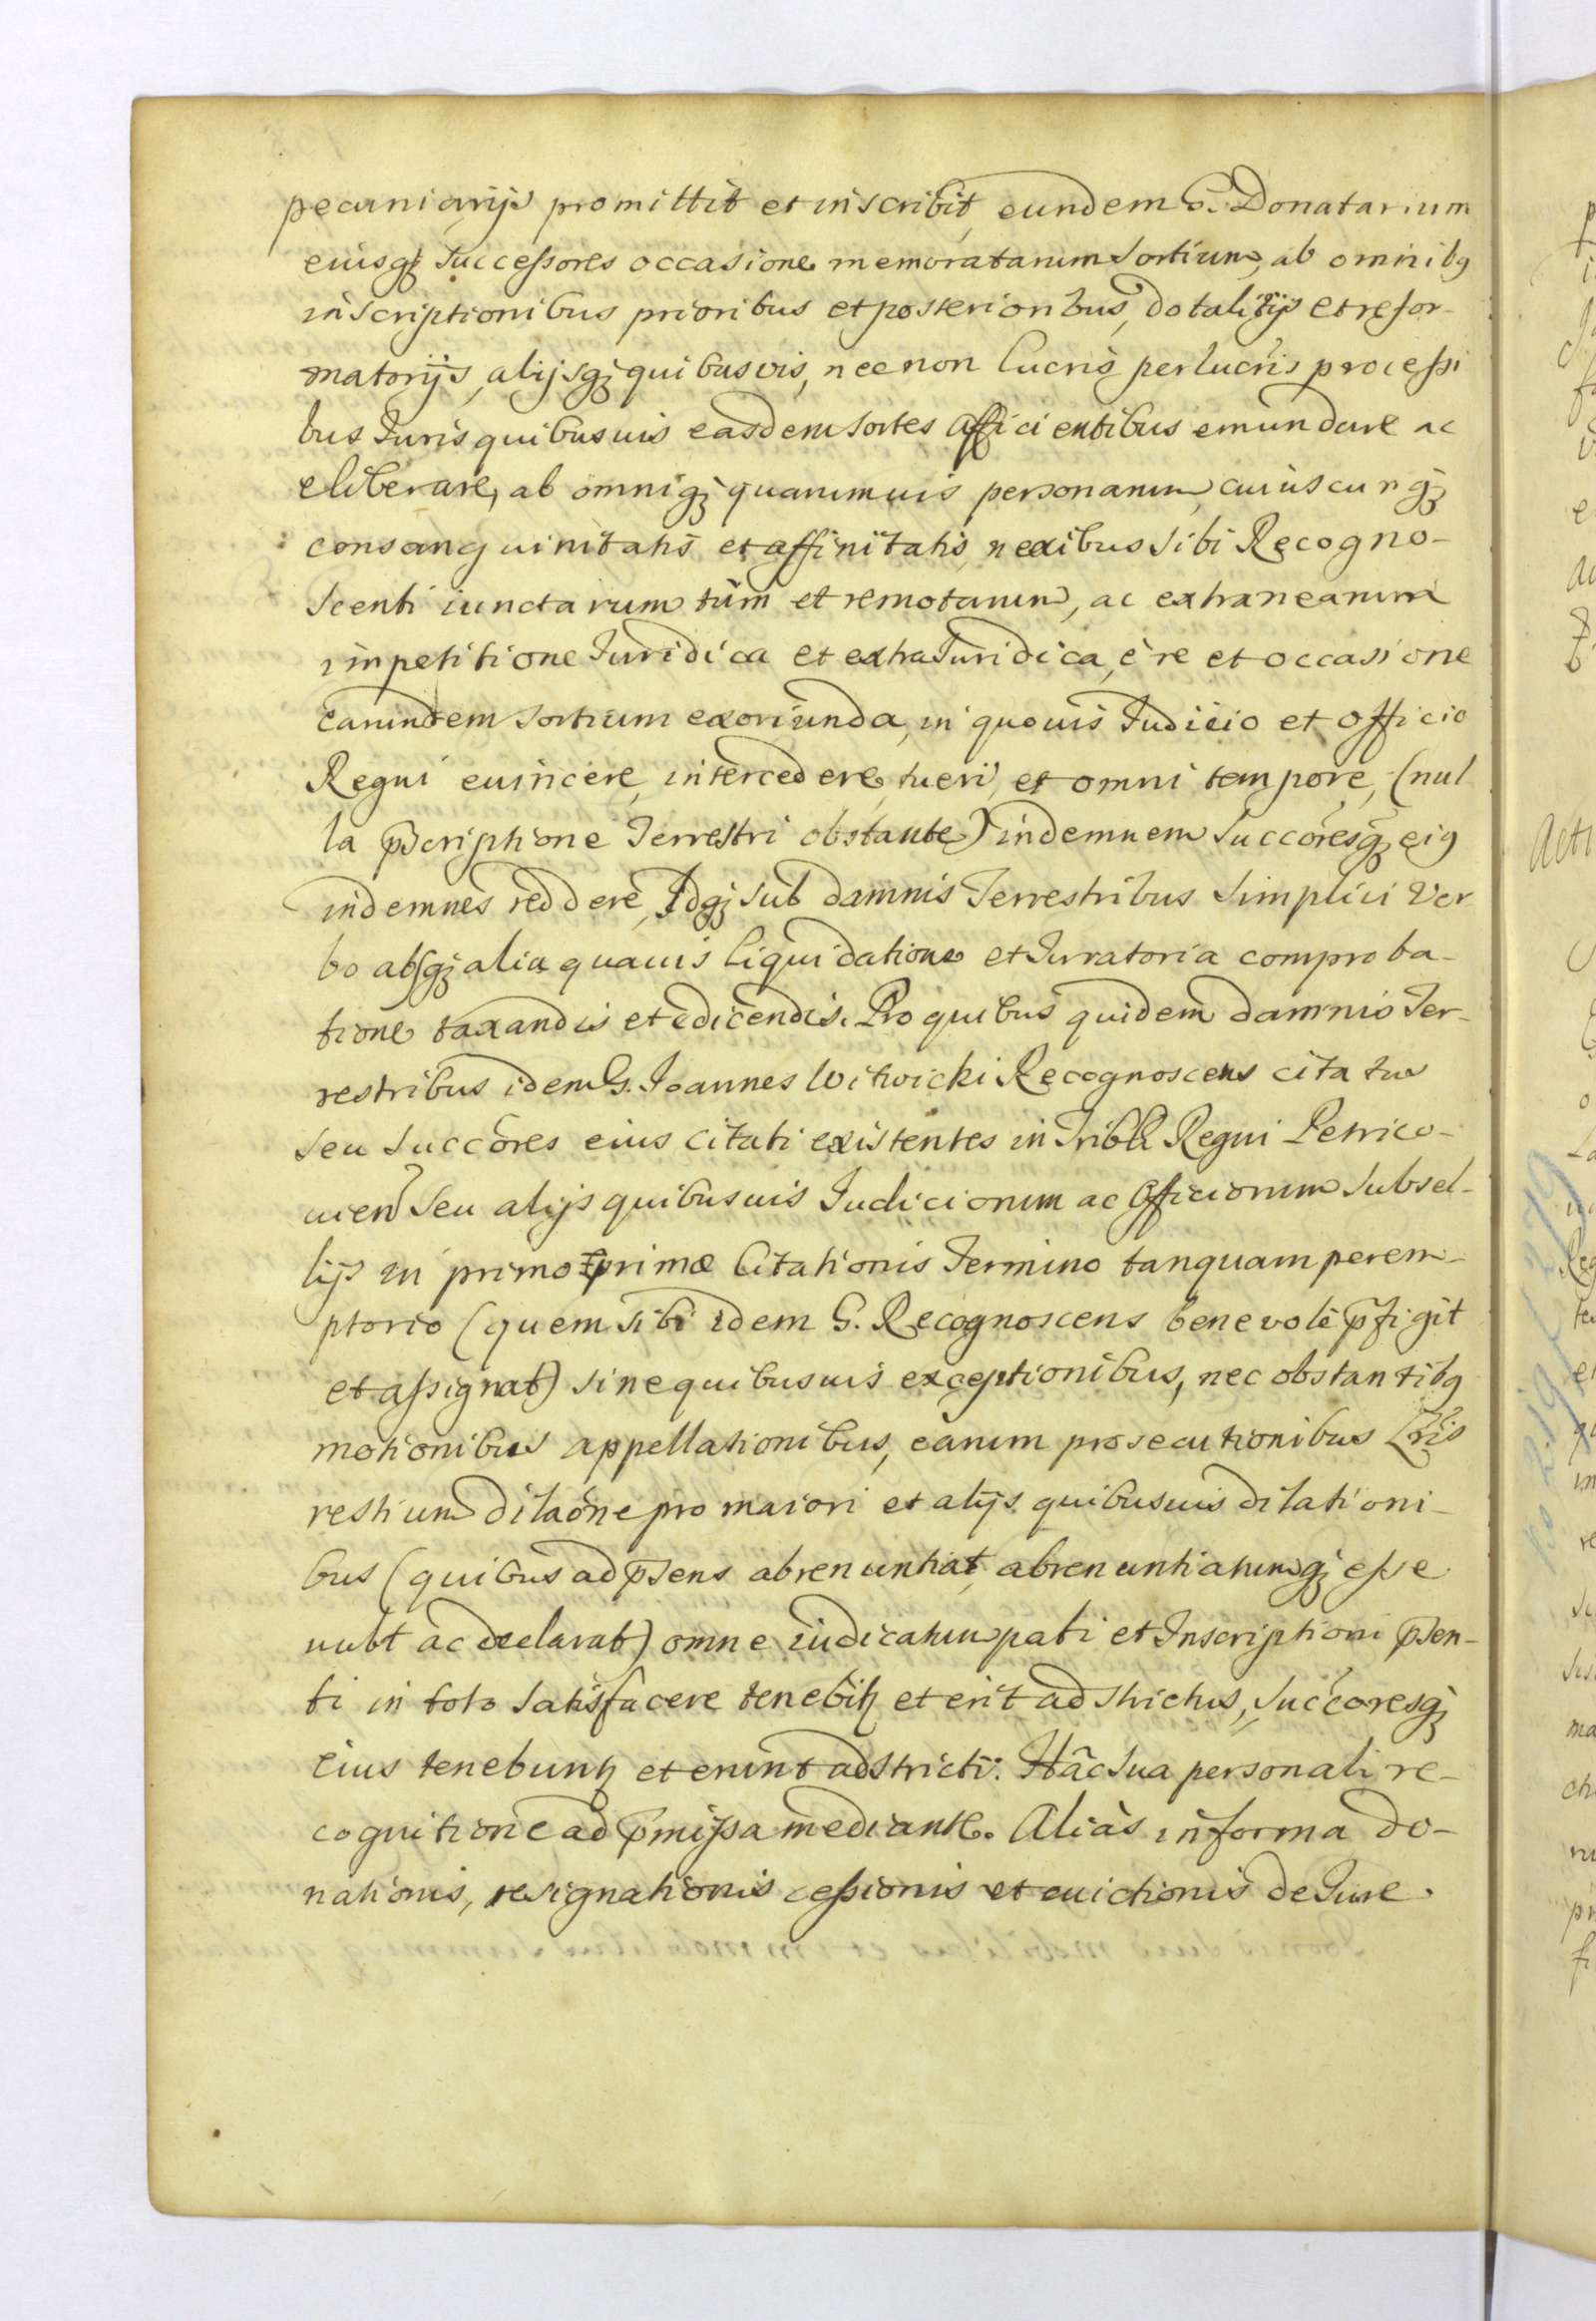 pecuniarijs promittit et inscribit, eundem G. Donatarium
eiusq3 Successores occasione memoratarum sortium, ab omnibꝰ
inscriptionibus prioribus et posterioribus, dotalitijs et refor-
matorijs, alijsq3 quibusvis, nec non lucris perlucris processi
bus Iuris quibusuis easdem sortes afficientibus emundare ac
eliberare, ab omniq3 quarumuis personarum, cuiuscunq3
consanguinitatis et affinitatis, nexibus sibi Recogno-
scenti iunctarum tum et remotarum, ac extranearum
impetitione Iuridica et extraIuridica, è re et occasione
earundem sortium exoriunda, in quouis Iudicio et officio
Regni euincere, intercedere, tueri, et omni tempore, (nul
la p̄scriptione Terrestri obstante) indemnem Succoresq3 eiꝰ
indemnes reddere, Idq3 sub damnis Terrestribus simplici Ver
bo absq3 alia quauis liquidatione et Iuratoria comproba-
tione taxandis et edicendis. Pro quibus quidem damnis Ter-
restribus idem G. Joannes Witwicki Recognoscens citatus
seu succōres eius citati existentes in Tribli Regni Petrico-
uien seu alijs quibusuis Iudiciorum ac Officiorum subsel-
lijs in primo primæ Citationis Termino tanquam perem-
ptorio (quem sibi idem G. Recognoscens beneuolè p̄figit
et assignat) sine quibusuis exceptionibus, nec obstantibꝰ
motionibus appellationibus, earum prosecutionibus Lris
restium dilaōne pro maiori et alijs quibusuis dilationi-
bus (quibus ad p̄sens abrenuntiat, abrenuntiatumq3 esse
uult ac declarat) omne iudicatum pati et Inscriptioni p̄sen-
ti in toto satisfacere tenebitꝫ et erit adstrictus, succōresq3
eius tenebuntꝫ et erunt adstricti. Hâc sua personali re-
cognitione ad p̄missa mediante. Aliàs in forma do-
nationis, resignationis cessionis et euictionis de Iure.